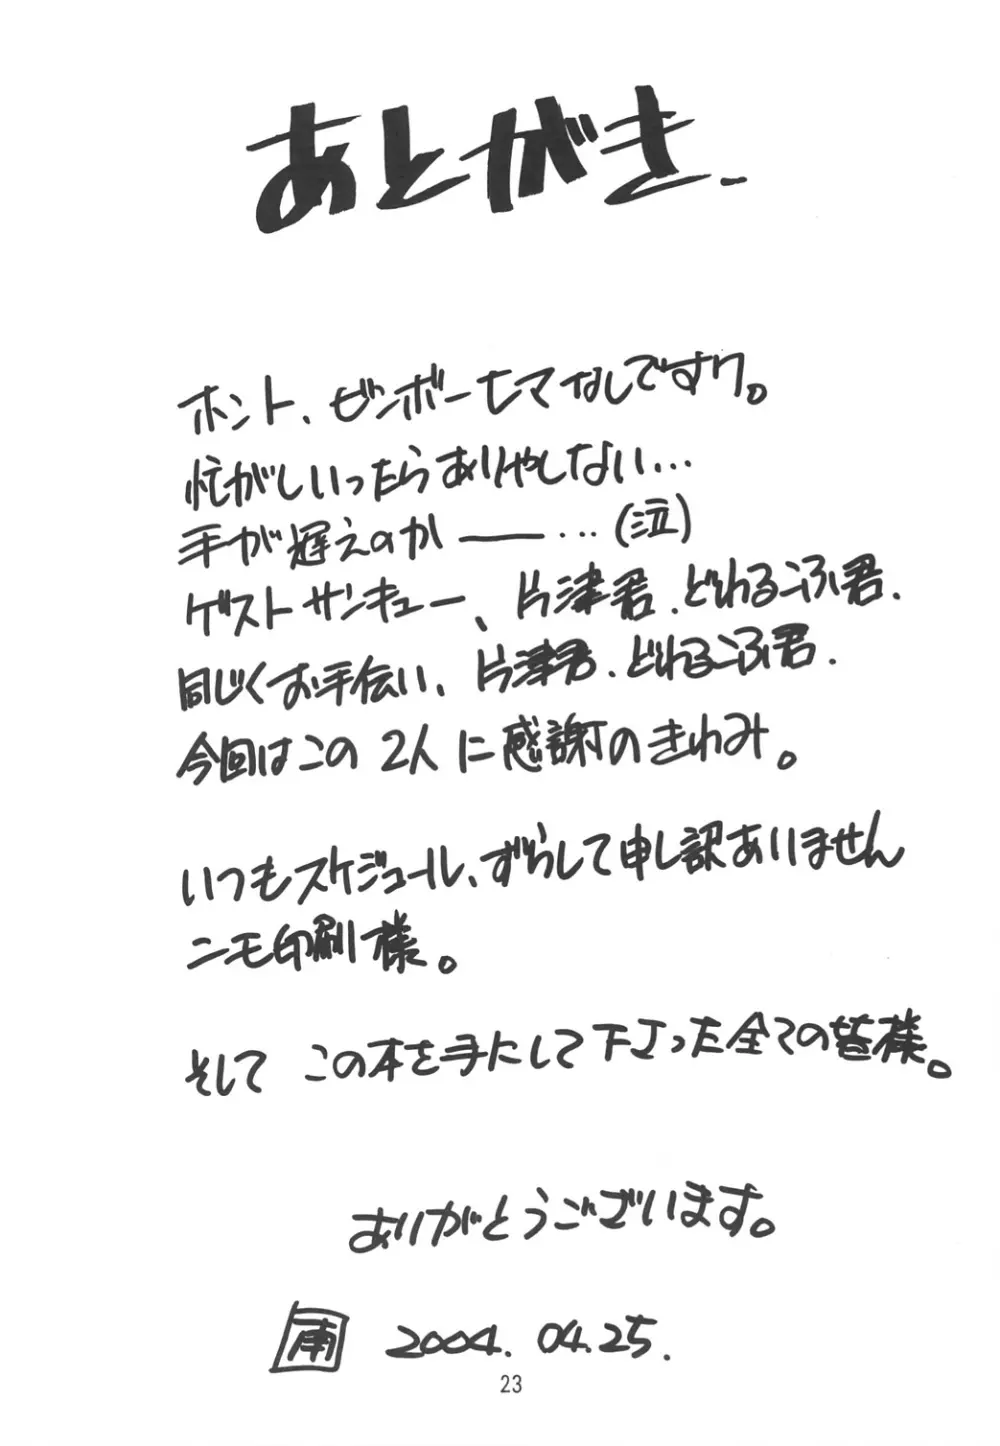 あとがき
ホント、ビンボーヒマなしですワ。
忙がしいったらありゃしない…
手が遅えのかー…(泣)
ゲストサンキュー、片津君.どわるこふ君.
同じくお手伝い、片津君.どわるこふ君.
今回はこの2人に感謝のきわみ。
いつもスケジュール、ずらして申し訳ありません
ニモ印刷様。
そして この本を手にして下さった全ての皆様。
ありがとうございます。
2004.04.25.
23